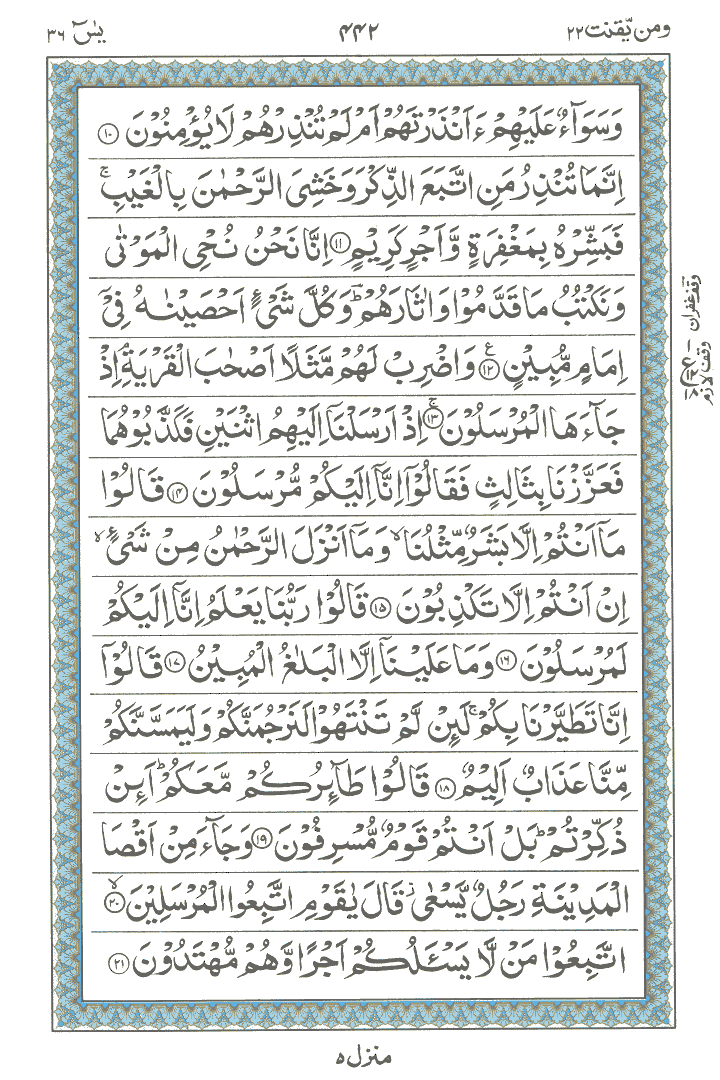 ومن يّقنت ٢٢
٤٤٢
يٰسٓ ٣٦
وَسَوَآءٌ عَلَيْهِمْ ءَاَنْذَرْتَهُمْ اَمْ لَمْ تُنْذِرْهُمْ لَا يُؤْمِنُوْنَ ﴿١٠﴾
اِنَّمَا تُنْذِرُ مَنِ اتَّبَعَ الذِّكْرَ وَخَشِىَ الرَّحْمٰنَ بِالْغَيْبِ ۚ
فَبَشِّرْهُ بِمَغْفِرَةٍ وَّاَجْرٍ كَرِيْمٍ ﴿١١﴾ اِنَّا نَحْنُ نُحْىِ الْمَوْتٰى
وَنَكْتُبُ مَا قَدَّمُوْا وَاٰثَارَهُمْ ؕ وَكُلَّ شَىْءٍ اَحْصَيْنٰهُ فِىْٓ
اِمَامٍ مُّبِيْنٍ ﴿١٢﴾ ع وَاضْرِبْ لَهُمْ مَّثَلًا اَصْحٰبَ الْقَرْيَةِ ۘ اِذْ
جَآءَهَا الْمُرْسَلُوْنَ ﴿١٣﴾ ۚ اِذْ اَرْسَلْنَاۤ اِلَيْهِمُ اثْنَيْنِ فَكَذَّبُوْهُمَا
فَعَزَّزْنَا بِثَالِثٍ فَقَالُوْٓا اِنَّاۤ اِلَيْكُمْ مُّرْسَلُوْنَ ﴿١٤﴾ قَالُوْا
مَاۤ اَنْتُمْ اِلَّا بَشَرٌ مِّثْلُنَا ۙ وَمَاۤ اَنْزَلَ الرَّحْمٰنُ مِنْ شَىْءٍ ۙ
اِنْ اَنْتُمْ اِلَّا تَكْذِبُوْنَ ﴿١٥﴾ قَالُوْا رَبُّنَا يَعْلَمُ اِنَّاۤ اِلَيْكُمْ
لَمُرْسَلُوْنَ ﴿١٦﴾ وَمَا عَلَيْنَاۤ اِلَّا الْبَلٰغُ الْمُبِيْنُ ﴿١٧﴾ قَالُوْٓا
اِنَّا تَطَيَّرْنَا بِكُمْ ۚ لَئِنْ لَّمْ تَنْتَهُوْا لَنَرْجُمَنَّكُمْ وَلَيَمَسَّنَّكُمْ
مِّنَّا عَذَابٌ اَلِيْمٌ ﴿١٨﴾ قَالُوْا طَآئِرُكُمْ مَّعَكُمْ ؕ اَئِنْ
ذُكِّرْتُمْ ؕ بَلْ اَنْتُمْ قَوْمٌ مُّسْرِفُوْنَ ﴿١٩﴾ وَجَآءَ مِنْ اَقْصَا
الْمَدِيْنَةِ رَجُلٌ يَّسْعٰى ز قَالَ يٰقَوْمِ اتَّبِعُوا الْمُرْسَلِيْنَ ﴿٢٠﴾ ۙ
اتَّبِعُوْا مَنْ لَّا يَسْـَٔلُكُمْ اَجْرًا وَّهُمْ مُّهْتَدُوْنَ ﴿٢١﴾
وقف غفران
وقف لازم
منزل ٥